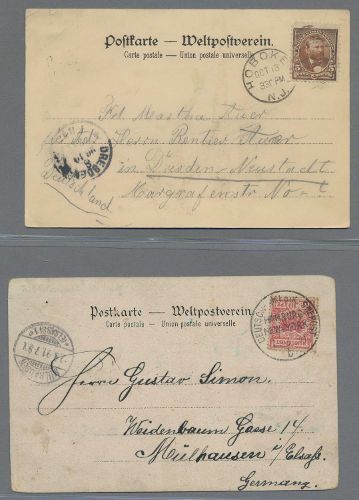 Postkarte — Weltpostverein.
Carte postale — Union postale universelle.
HOBOKEN
OCT 13
830 PM
N.J.
Frl Martha Auer
Herrn Rentier Auer
in Dresden-Neustadt
Deutschland
Margrafenstr No
DRESDEN
Postkarte — Weltpostverein.
Carte postale — Union postale universelle.
HAMBURG
NEW YORK
Herrn Gustav Simon.
Weidenbaum Gasse 14
Mülhausen i/Elsaß.
Germany.